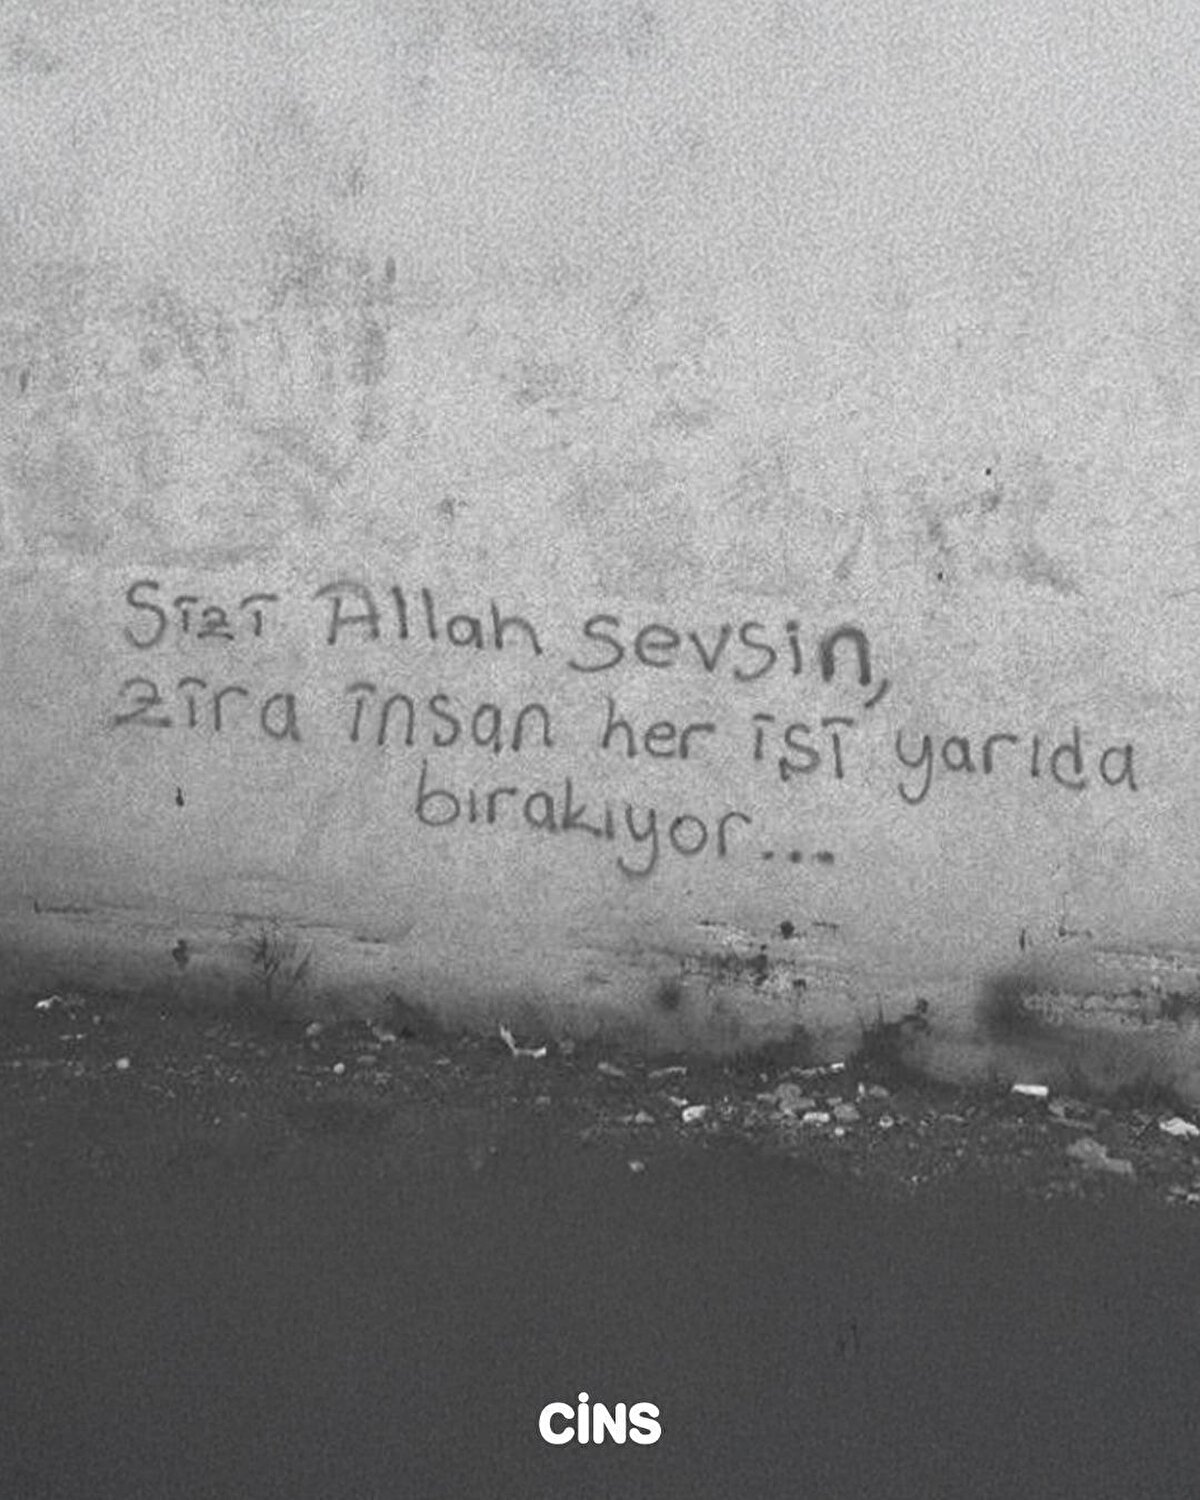 Sizi Allah sevsin,
zira insan her işi yarıda
bırakıyor...
CİNS